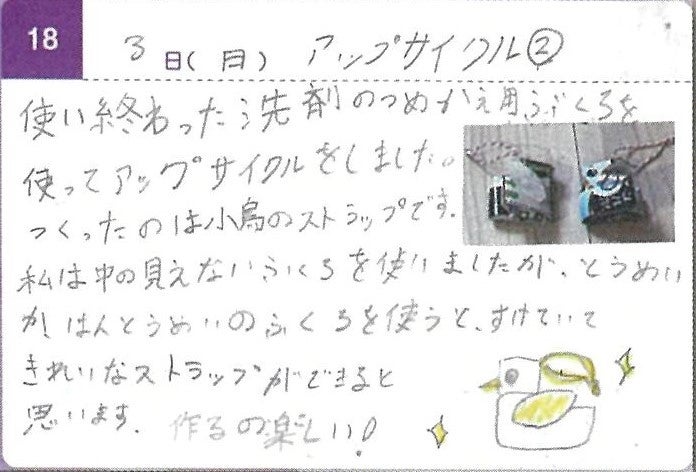 18
3日(日) アップサイクル②
使い終わった洗剤のつめかえ用ふくろを
使ってアップサイクルをしました。
つくったのは小鳥のストラップです。
私は中の見えないふくろを使いましたが、とうめい
か、はんとうめいのふくろを使うと、すけていて
きれいなストラップができると
思います。作るの楽しい!